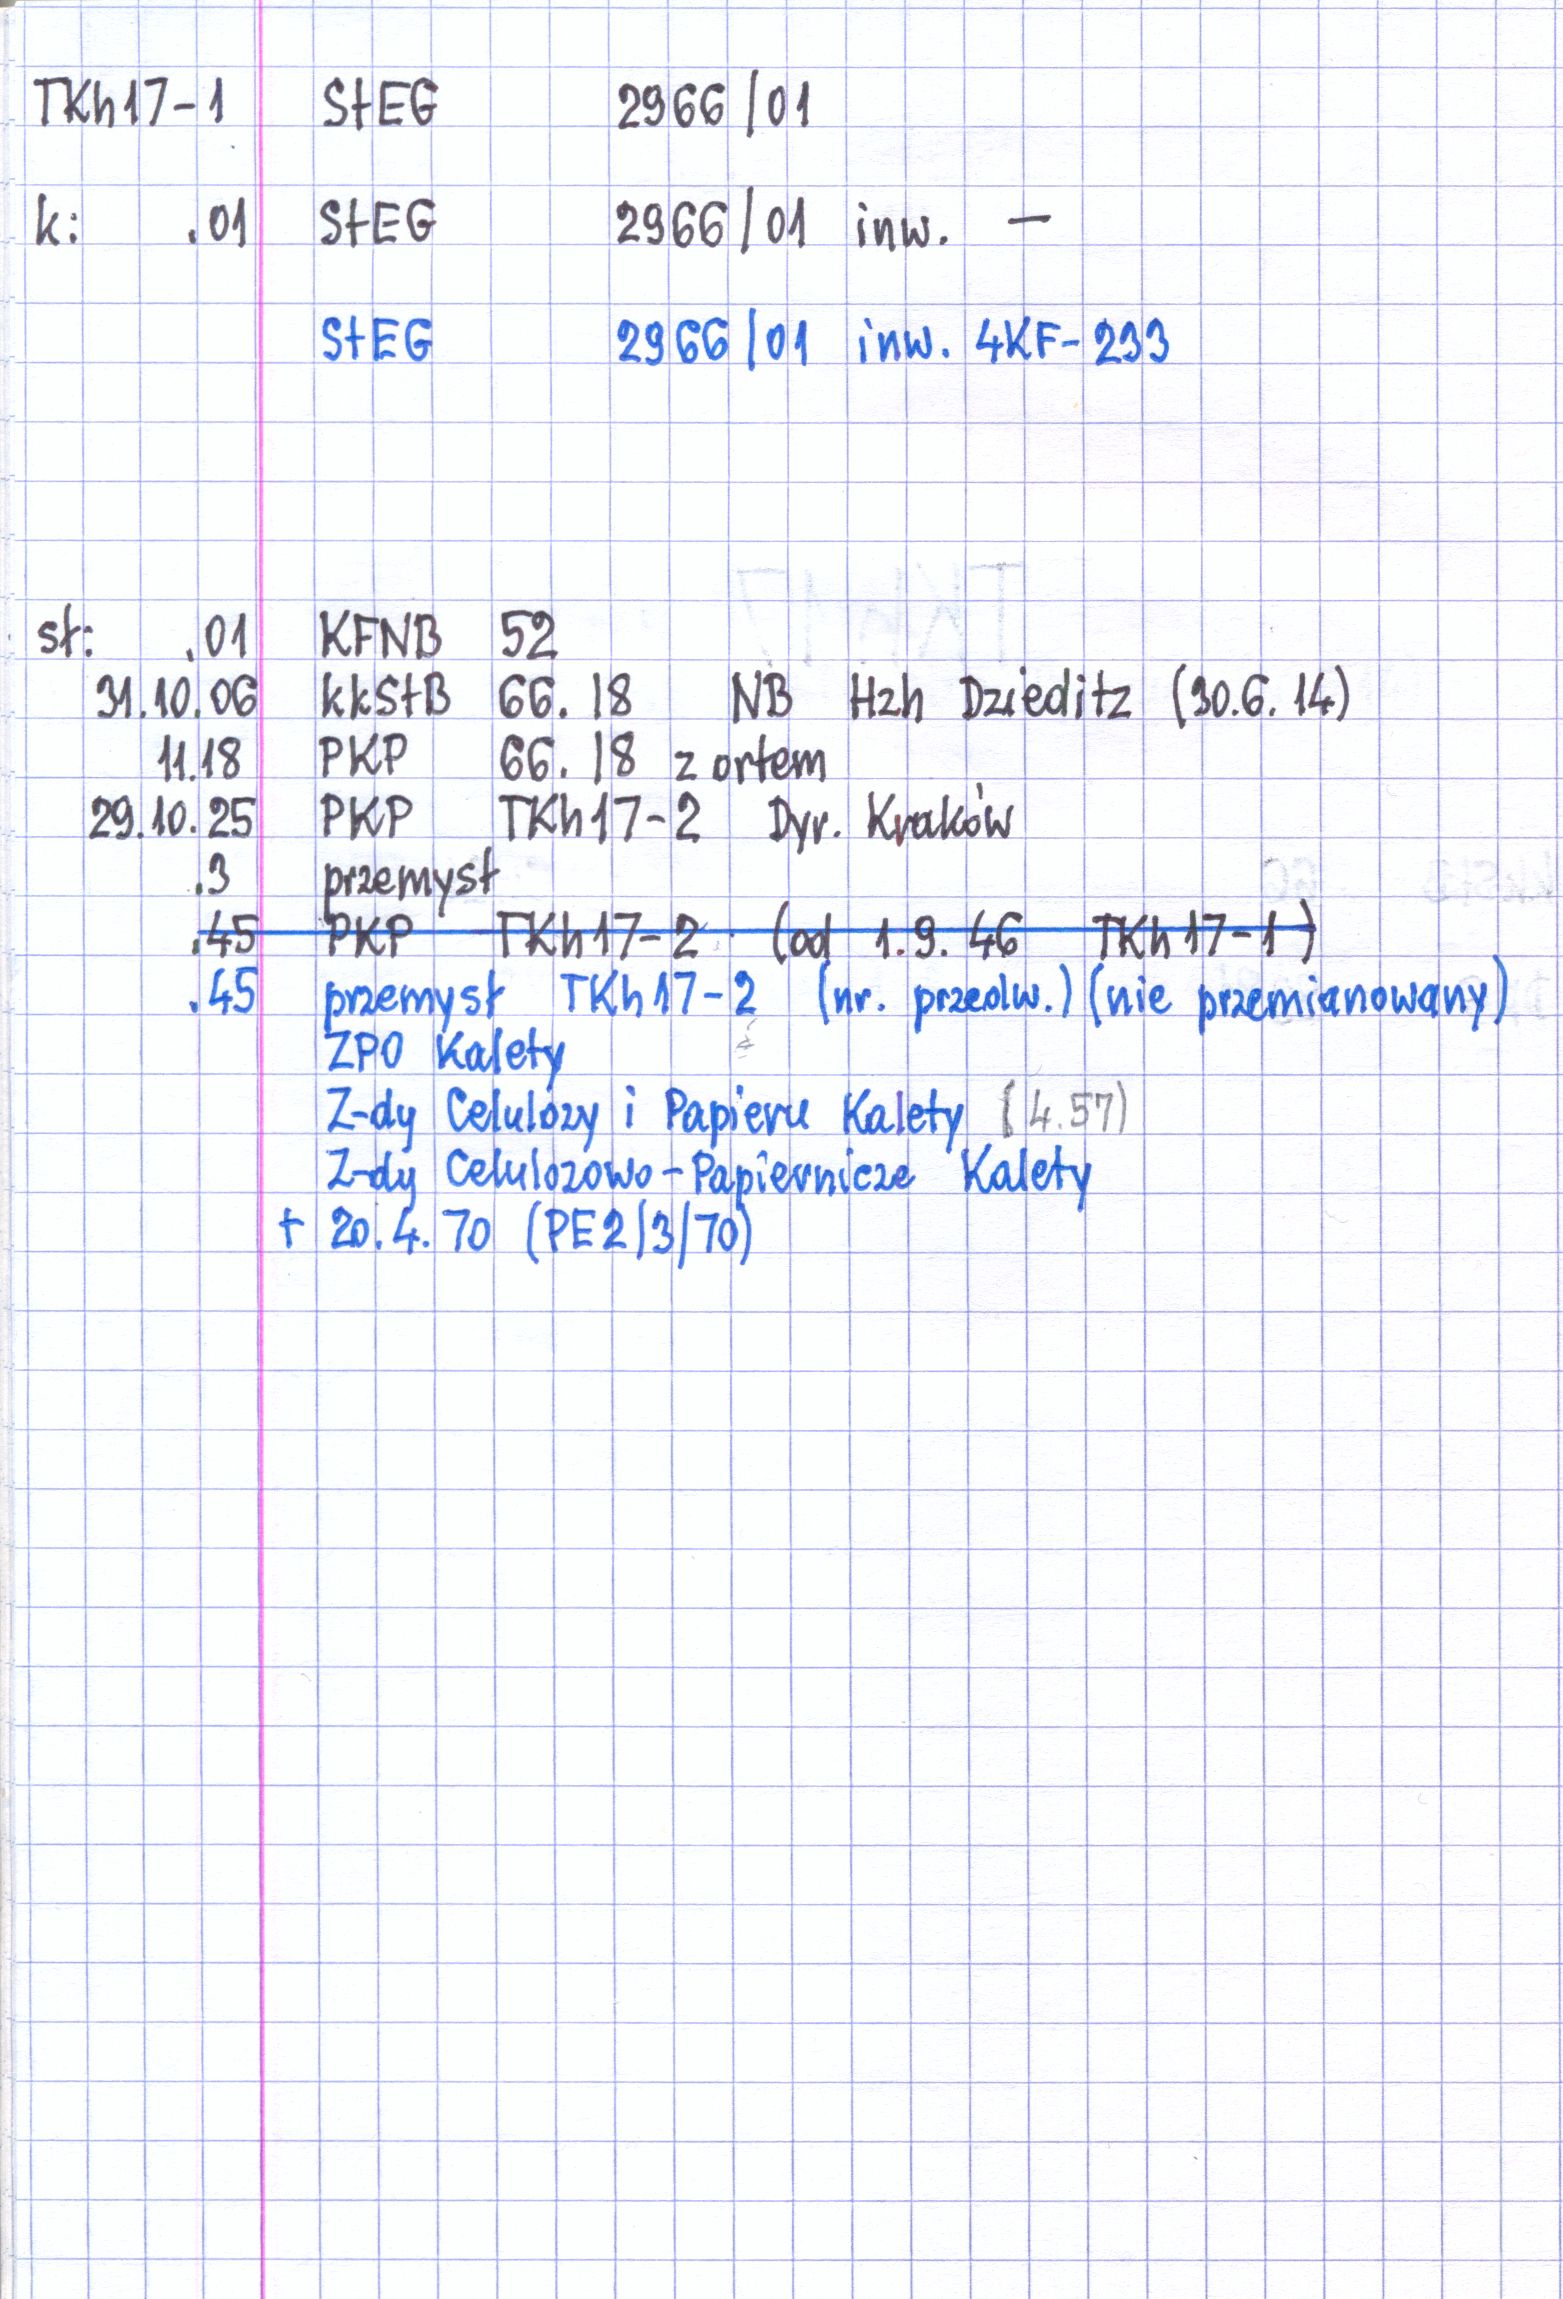 TKh17-1 StEG 2966/01
k: .01 StEG 2966/01 inw. —
StEG 2966/01 inw. 4KF-233
sł: .01 KFNB 52
31.10.06 kkStB 66.18 NB Hzh Dzieditz (30.6.14)
11.18 PKP 66.18 z orłem
29.10.25 PKP TKh17-2 Dyr. Kraków
.3 przemysł
.45 PKP TKh17-2 (od 1.9.46 TKh17-1)
.45 przemysł TKh17-2 (nr. przedw.) (nie przemianowany)
ZPO Kalety
Z-dy Celulozy i Papieru Kalety (4.57)
Z-dy Celulozowo-Papiernicze Kalety
+ 20.4.70 (PE2/3/70)